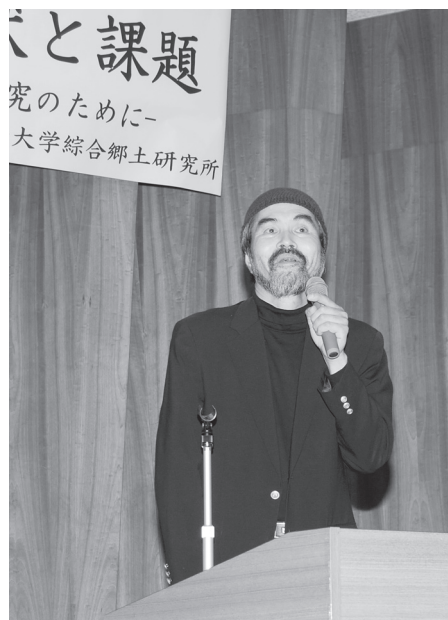 と課題
究のために-
大学綜合郷土研究所